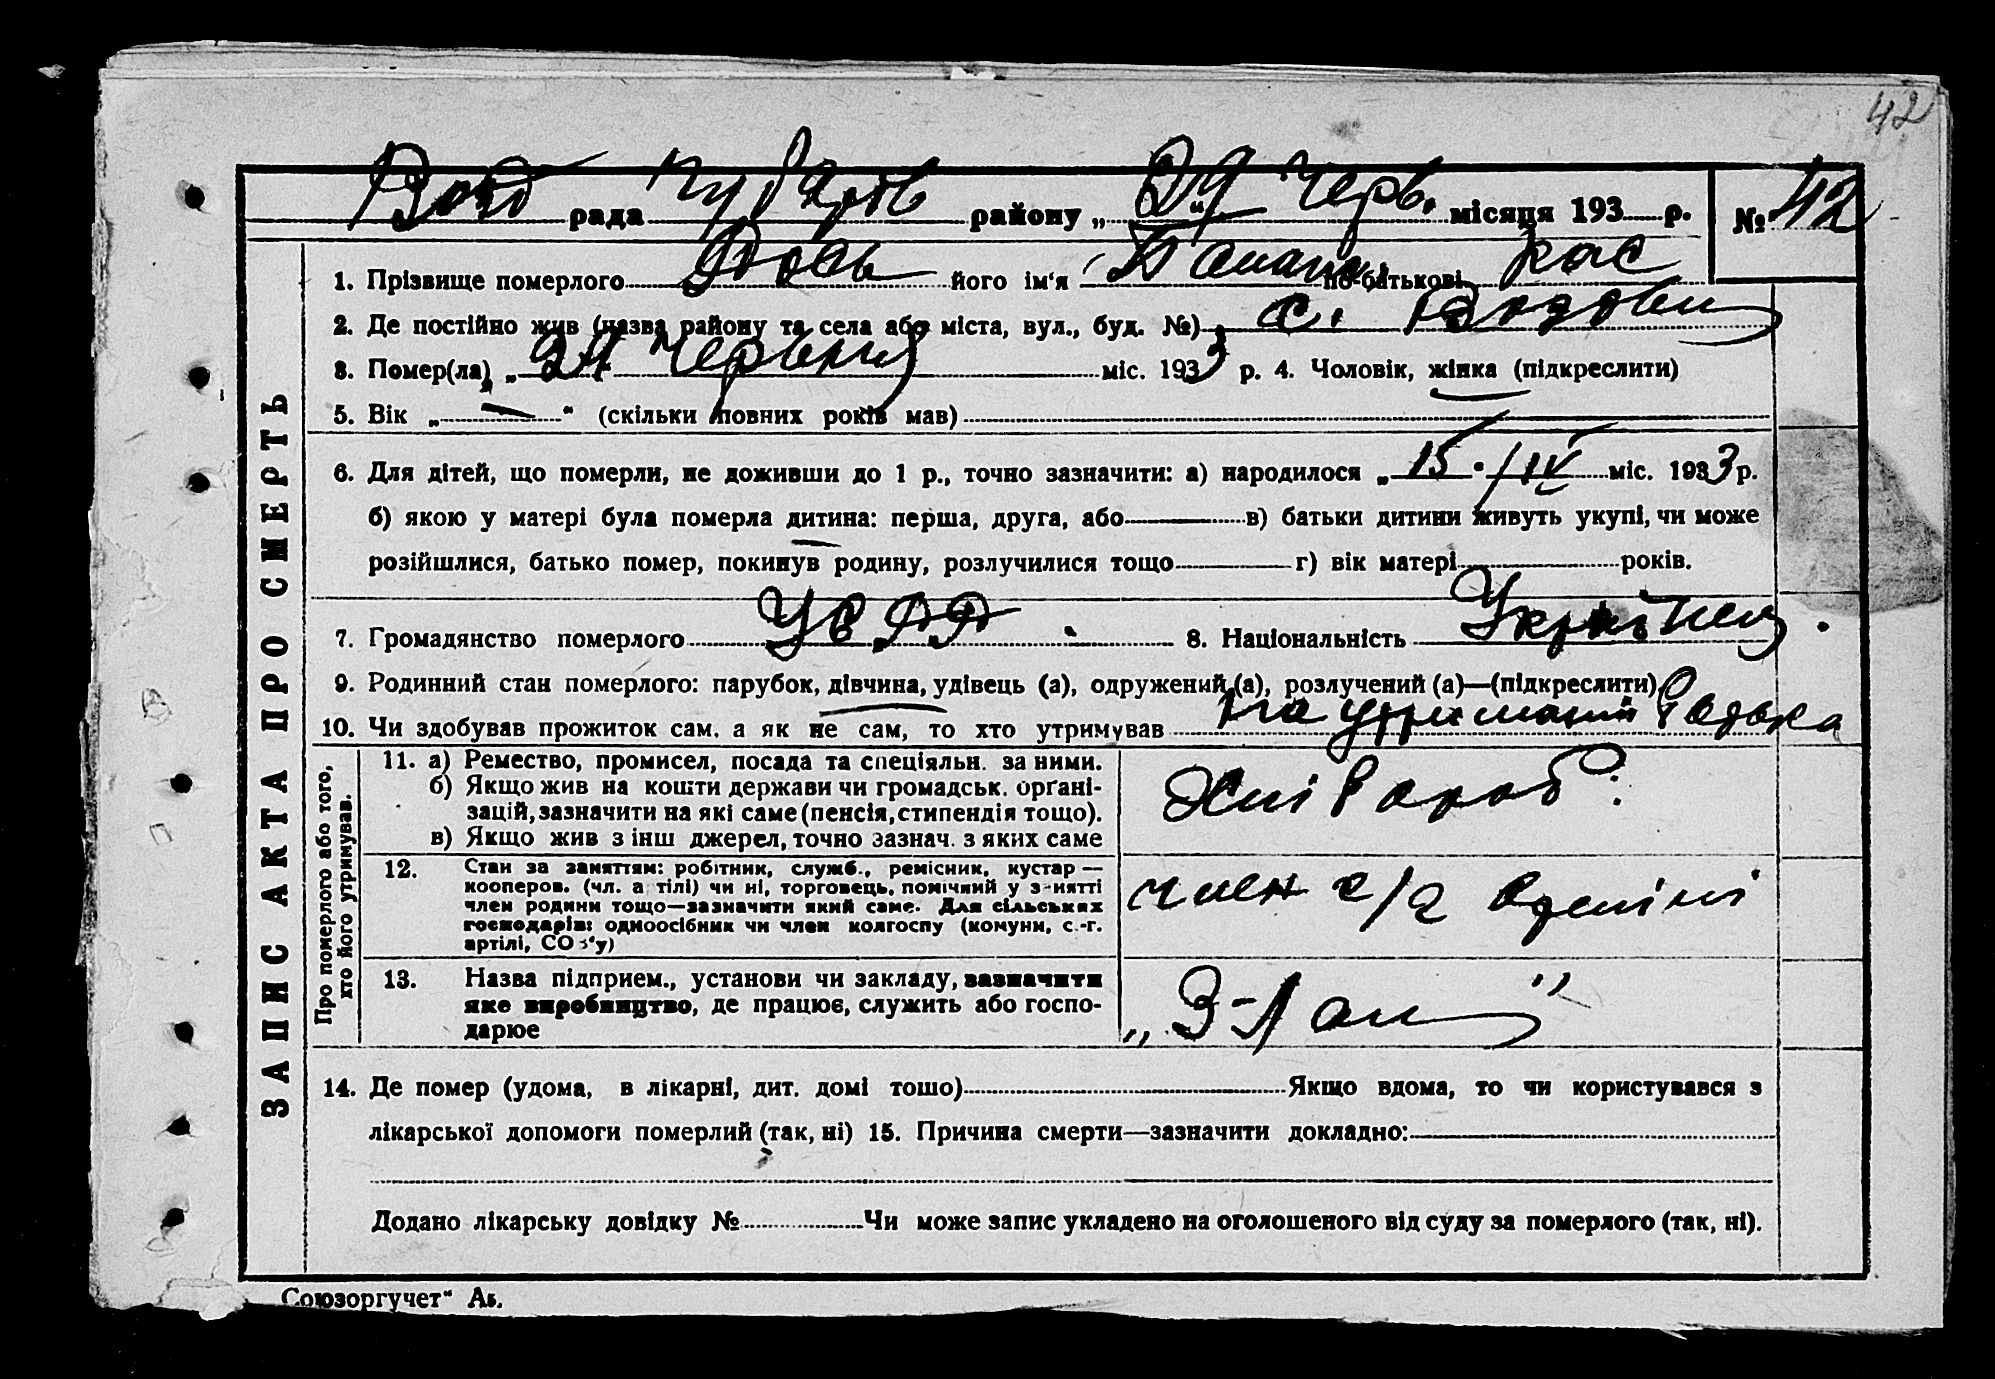 42
рада Чубарів району „29“ Черв. місяця 193 р. № 42
ЗАПИС АКТА ПРО СМЕРТЬ
1. Прізвище померлого його ім‘я по-батькові
2. Де постійно жив (назва району та села або міста, вул., буд. №) с.
3. Помер(ла) „ Червня міс. 1933 р. 4. Чоловік, жінка (підкреслити)
5. Вік „ — “ (скільки повних років мав)
6. Для дітей, що померли, не доживши до 1 р., точно зазначити: а) народилося „ 15 “ IV міс. 1933 р.
б) якою у матері була померла дитина: перша, друга, або в) батьки дитини живуть укупі, чи може
розійшлися, батько помер, покинув родину, розлучилися тощо г) вік матері років.
7. Громадянство померлого УСРР 8. Національність
9. Родинний стан померлого: парубок, дівчина, удівець (а), одружений (а), розлучений (а)—(підкреслити)
10. Чи здобував прожиток сам, а як не сам, то хто утримував на утриманні батька
Про померлого або того, хто його утримував.
11. а) Ремество, промисел, посада та спеціяльн. за ними.
б) Якщо жив на кошти держави чи громадськ. органі-
зацій, зазначити на які саме (пенсія, стипендія тощо).
в) Якщо жив з інш джерел, точно зазнач. з яких саме
Хлібороб
12. Стан за заняттям: робітник, служб., ремісник, кустар —
кооперов. (чл. а тілі) чи ні, торговець, помічний у з-нятті
член родини тощо—зазначити який саме. Для сільських
господарів: одноосібник чи член колгоспу (комуни, с.-г.
артілі, СО з‘у)
член с/г артілі
13. Назва підприєм., установи чи закладу, зазначити
яке виробництво, де працює, служить або госпо-
дарює
14. Де помер (удома, в лікарні, дит. домі тошо) Якщо вдома, то чи користувався з
лікарської допомоги померлий (так, ні) 15. Причина смерти—зазначити докладно:
Додано лікарську довідку № Чи може запис укладено на оголошеного від суду за померлого (так, ні).
Союзоргучет“